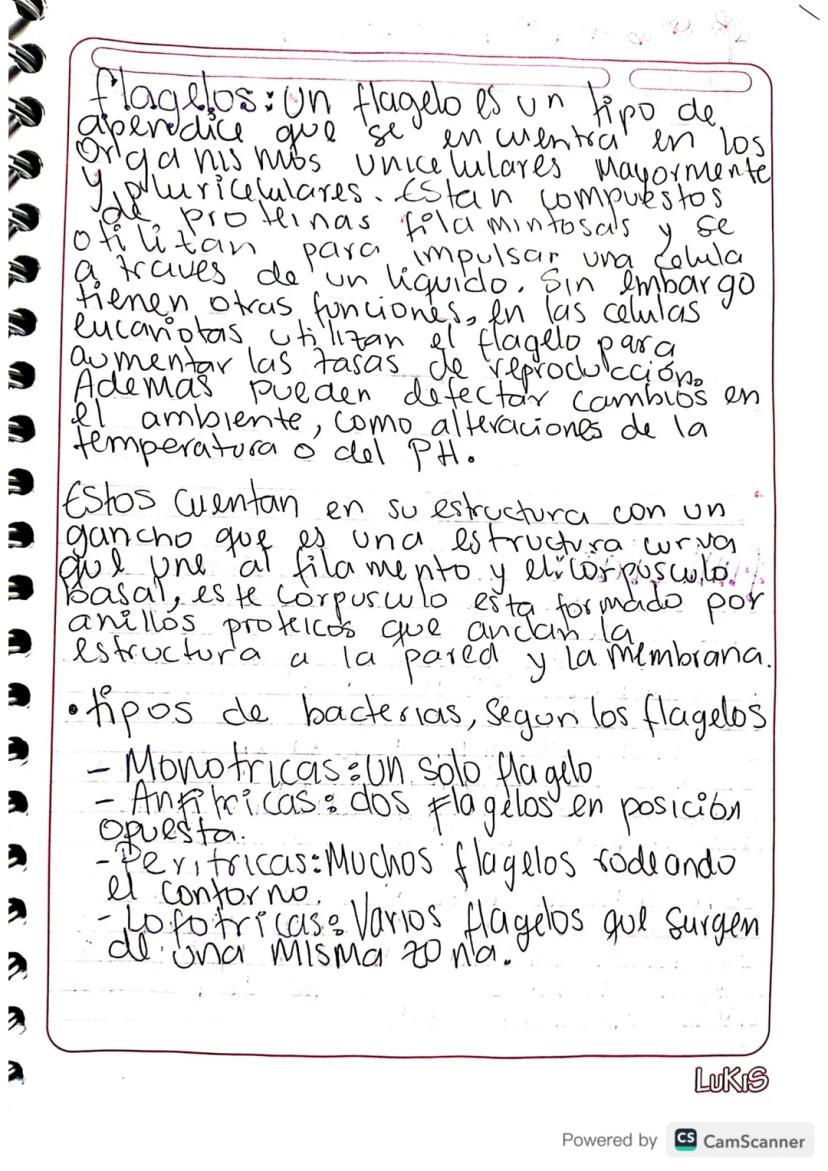 Flagelos: Un flagelo es un tipo de
apendice que se encuentra en los
Organismos unicelulares Mayormente
y pluricelulares. Estan compuestos
de proteinas filamintosas y se
otilitan para impulsar una celula
a traves de un liquido. Sin embargo
tienen otras funciones, en las celulas
eucariotas utilizan el flagelo para
aumentar las tasas de reproducción.
Ademas pueden detectar cambios en
el ambiente, como alteraciones de la
temperatura o del PH.
Estos cuentan en su estructura con un
gancho que es una estructura curva
que une al filamento y el corpusculo
basal, este corpusculo esta formado por
anillos proteicos que andan la
estructura a la pared y la membrana.
• tipos de bacterias, Segun los flagelos
- Monotricas: Un solo flagelo
- Anfitricas: dos Flagelos en posición
Opuesta.
- Peritricas: Muchos flagelos rodeando
el contorno.
- Lofotricas: Varios flagelos que surgen
de una misma zona.
LUKIS
Powered by CS CamScanner